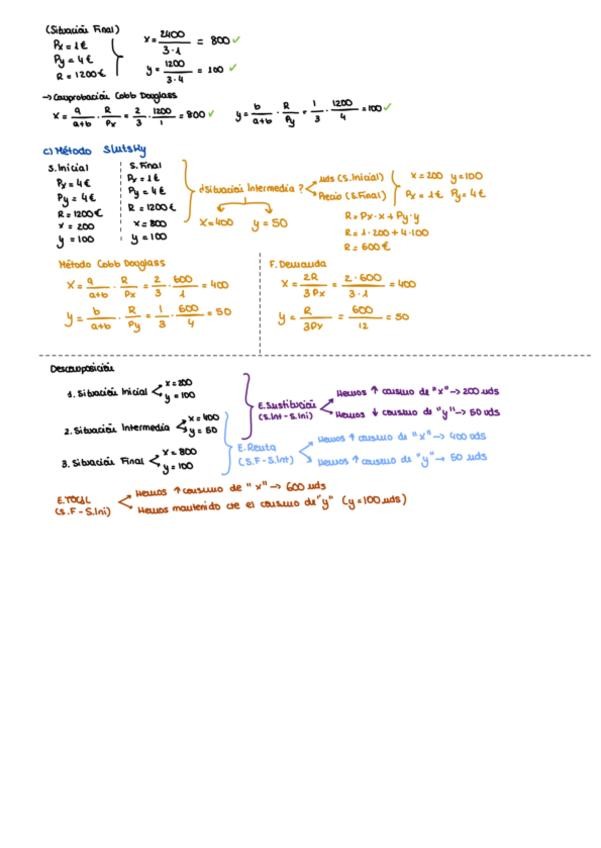 (Situación Final)
Px = 1€
Py = 4€
R = 1200€
x = 2400 / 3·1 = 800 ✓
y = 1200 / 3·4 = 100 ✓
→ Comprobación Cobb Douglass
x = a / a+b · R / Px = 2 / 3 · 1200 / 1 = 800 ✓ y = b / a+b · R / Py = 1 / 3 · 1200 / 4 = 100 ✓
c) Método Slutsky
S. Inicial
Px = 4€
Py = 4€
R = 1200€
x = 200
y = 100
S. Final
Px = 1€
Py = 4€
R = 1200€
x = 800
y = 100
¿Situación Intermedia?
x = 400 y = 50
uds (S. Inicial)
Precio (S. Final)
x = 200 y = 100
Px = 1€ Py = 4€
R = Px · x + Py · y
R = 1 · 200 + 4 · 100
R = 600€
Método Cobb Douglass
x = a / a+b · R / Px = 2 / 3 · 600 / 1 = 400
y = b / a+b · R / Py = 1 / 3 · 600 / 4 = 50
F. Demanda
x = 2R / 3Px = 2 · 600 / 3 · 1 = 400
y = R / 3Py = 600 / 12 = 50
Descomposición
1. Situación Inicial < x = 200
y = 100
2. Situación Intermedia < x = 400
y = 50
3. Situación Final < x = 800
y = 100
E. Sustitución
(S. Int - S. Ini)
Hemos ↑ consumo de "x" → 200 uds
Hemos ↓ consumo de "y" → 50 uds
E. Renta
(S.F - S.Int)
Hemos ↑ consumo de "x" → 400 uds
Hemos ↑ consumo de "y" → 50 uds
E. TOTAL
(S.F - S.Ini)
Hemos ↑ consumo de "x" → 600 uds
Hemos mantenido cte el consumo de "y" (y = 100 uds)